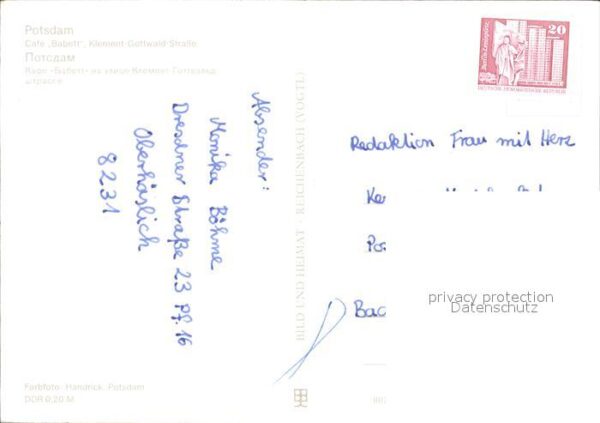 Potsdam
Café „Babett“, Klement-Gottwald-Straße
Потсдам
Кафе «Бабетт» на улице Клемент Готтвальд
штрассе
Absender:
Monika Böhme
Dresdner Straße 23 Pf. 16
Oberhäslich
8231
BILD UND HEIMAT · REICHENBACH (VOGTL)
20
DEUTSCHE DEMOKRATISCHE REPUBLIK
Redaktion Frau mit Herz
privacy protection
Datenschutz
Farbfoto: Handrick, Potsdam
DDR 0,20 M